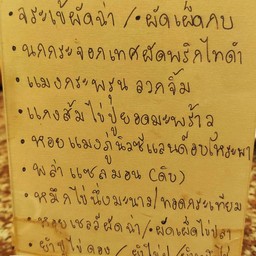 จระเข้ผัดฉ่า / ผัดเผ็ดกบ
• นกกระจอกเทศผัดพริกไทดำ
• แมงกะพรุน ลวกจิ้ม
• แกงส้มไข่ปูยอดมะพร้าว
• หอยแมงภู่นิวซีแลนด์อบโหระพา
• พล่า แซลมอน (ดิบ)
• หมึกไข่นึ่งมะนาว/ทอดกระเทียม
• หอยเชอรี่ผัดฉ่า/•ผัดเผ็ดไข่ปลา
• ยำไข่ดอง/